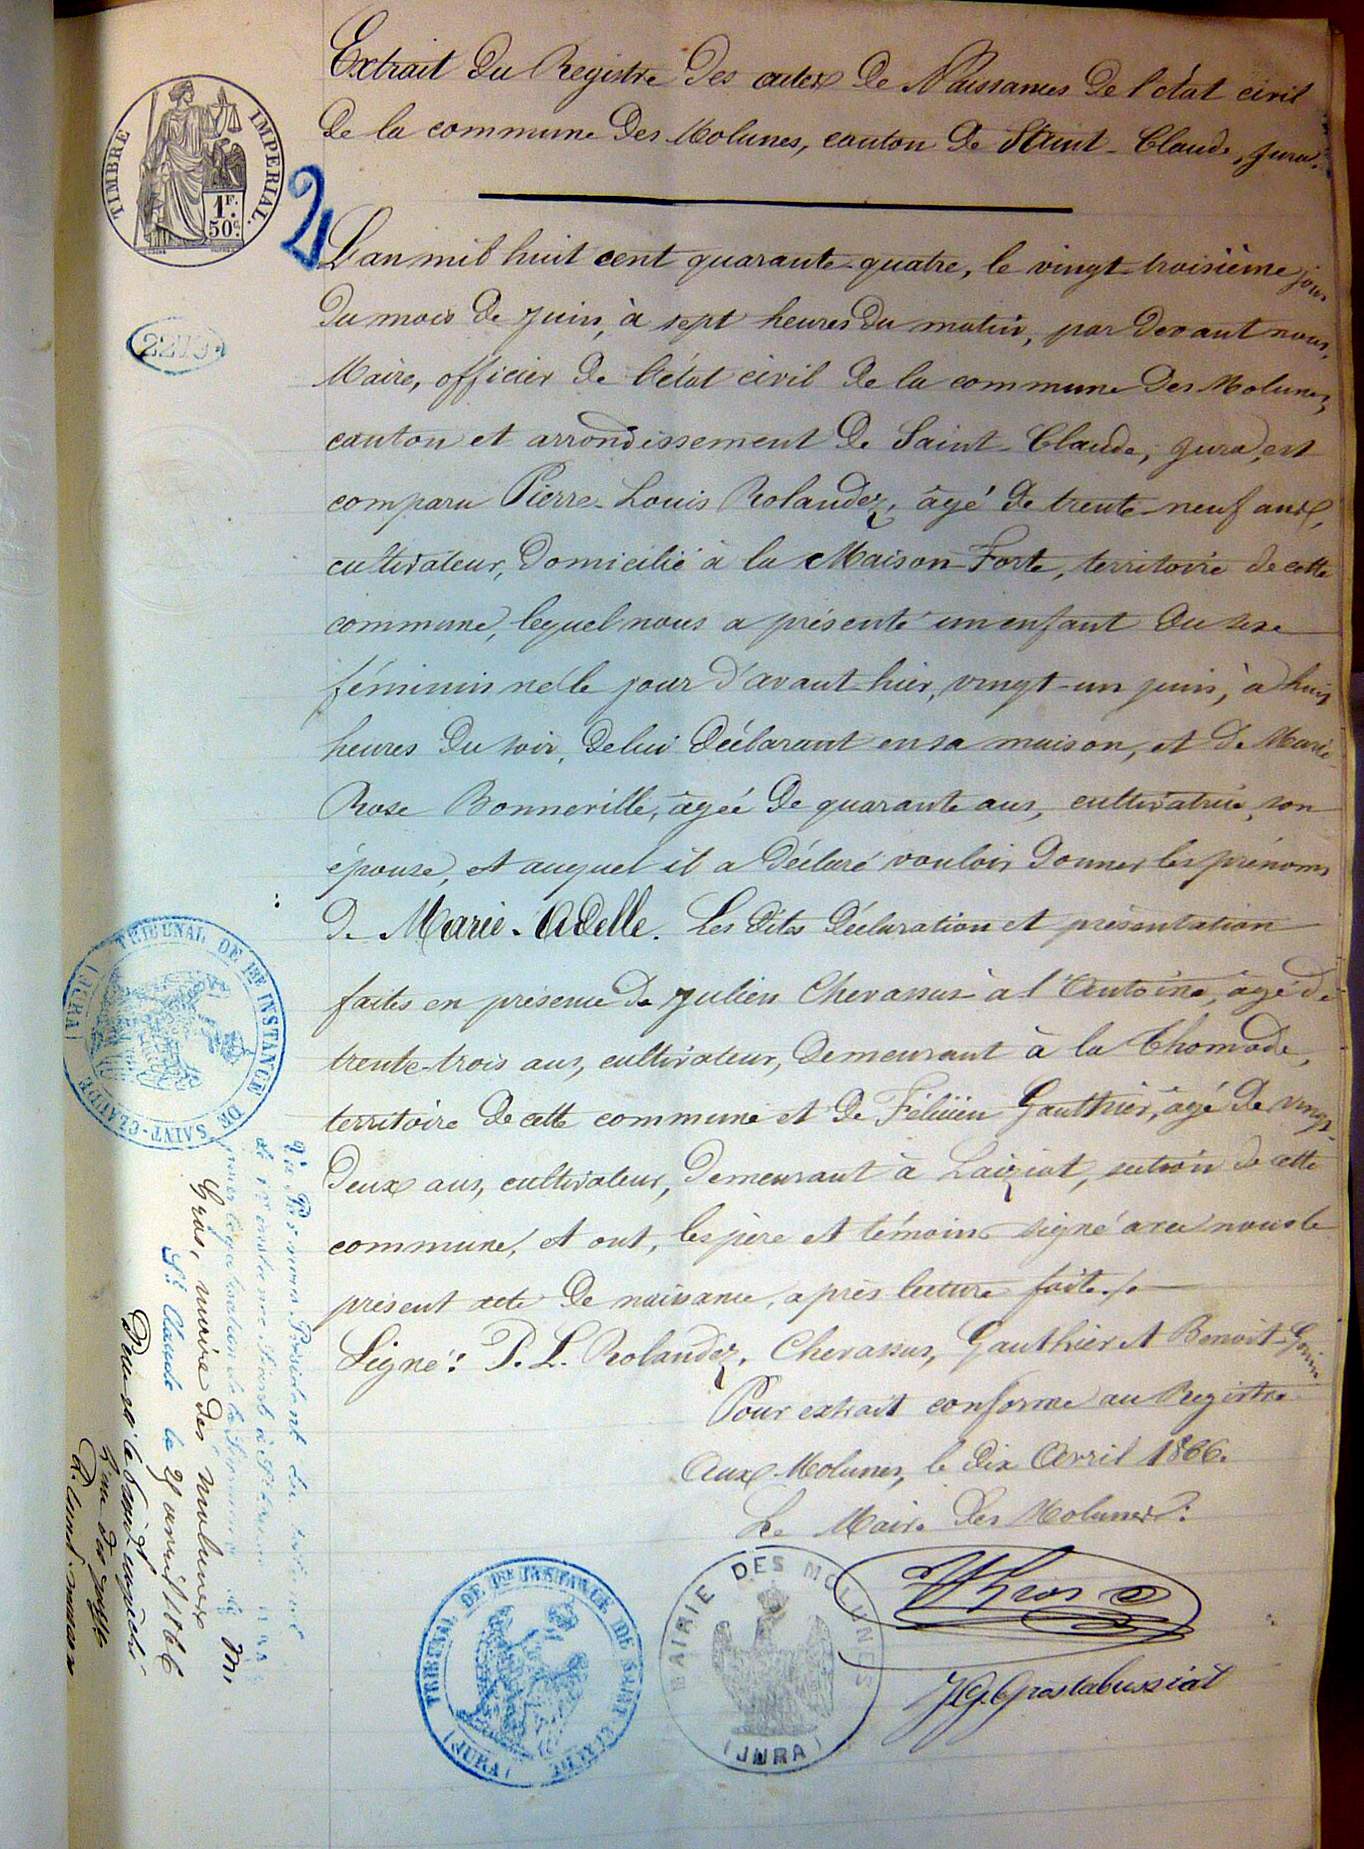 Extrait du Registre des actes de Naissances de l'état civil
de la commune des Molunes, canton de Saint-Claude, Jura.
TIMBRE IMPERIAL.
1F.
50c.
2
L'an mil huit cent quarante-quatre, le vingt-troisième jour
du mois de juin, à sept heures du matin, par devant nous,
Maire, officier de l'état civil de la commune des Molunes,
canton et arrondissement de Saint-Claude, Jura, est
comparu Pierre-Louis Rolandez, âgé de trente-neuf ans,
cultivateur, domicilié à la Maison-Forte, territoire de cette
commune, lequel nous a présenté un enfant du sexe
féminin né le jour d'avant-hier, vingt-un juin, à huit
heures du soir, de lui déclarant en sa maison, et de Marie-
Rose Bonneville, âgée de quarante ans, cultivatrice, son
épouse, et auquel il a déclaré vouloir donner les prénoms
de Marie-Adelle. Les dites déclaration et présentation
faites en présence de Julien Chevassus à l'Antoine, âgé de
trente-trois ans, cultivateur, demeurant à la Thomade,
territoire de cette commune et de Félicien Gauthier, âgé de vingt-
deux ans, cultivateur, demeurant à Laiziat, section de cette
commune, et ont, les père et témoins signé avec nous le
présent acte de naissance, après lecture faite./.
Signé: P. L. Rolandez, Chevassus, Gauthier et Benoit-Gonin
Pour extrait conforme au Registre
Aux Molunes, le dix Avril 1866.
Le Maire des Molunes:
Gros
TRIBUNAL DE 1RE INSTANCE DE SAINT-CLAUDE
(JURA)
MAIRIE DES MOLUNES
(JURA)
TRIBUNAL DE 1RE INSTANCE DE SAINT-CLAUDE
(JURA)
Vu par Nous Président du tribunal
de 1re instance séant à St Claude
pour légalisation de la signature de Mr
Gros, maire des Molunes
St Claude le 27 avril 1866